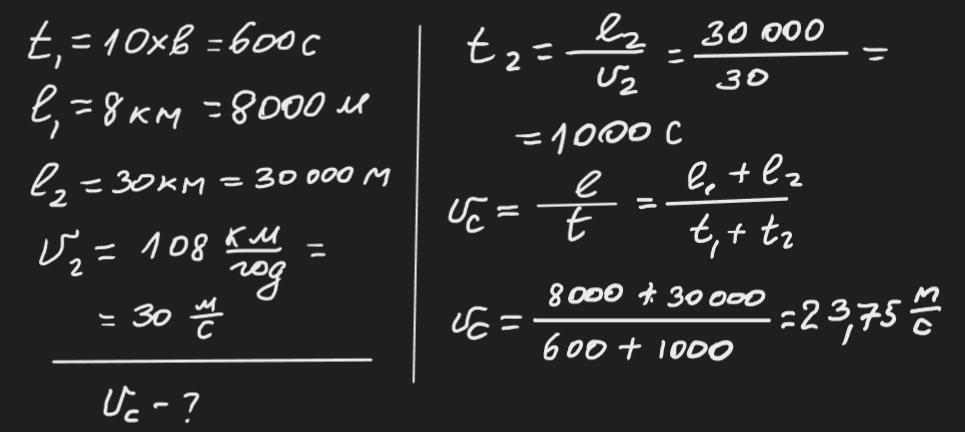 t₁ = 10хв = 600 с
l₁ = 8 км = 8000 м
l₂ = 30км = 30 000 м
v₂ = 108 км/год =
= 30 м/с
v_c - ?
t₂ = l₂/v₂ = 30 000/30 =
= 1000 с
v_c = l/t = (l₁ + l₂)/(t₁ + t₂)
v_c = (8000 + 30 000)/(600 + 1000) = 23,75 м/с